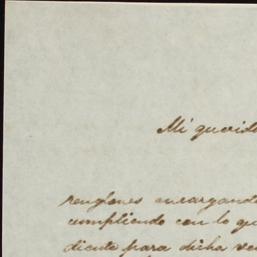 Mi querido
renglones encargando
cumpliendo con lo que
diente para dicha ve